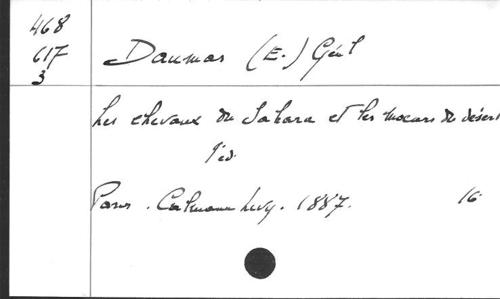 468
617
3
Daumas (E.) Gén
Les chevaux du Sahara et les moeurs du désert
éd.
Paris. Calmann Levy. 1887. 16